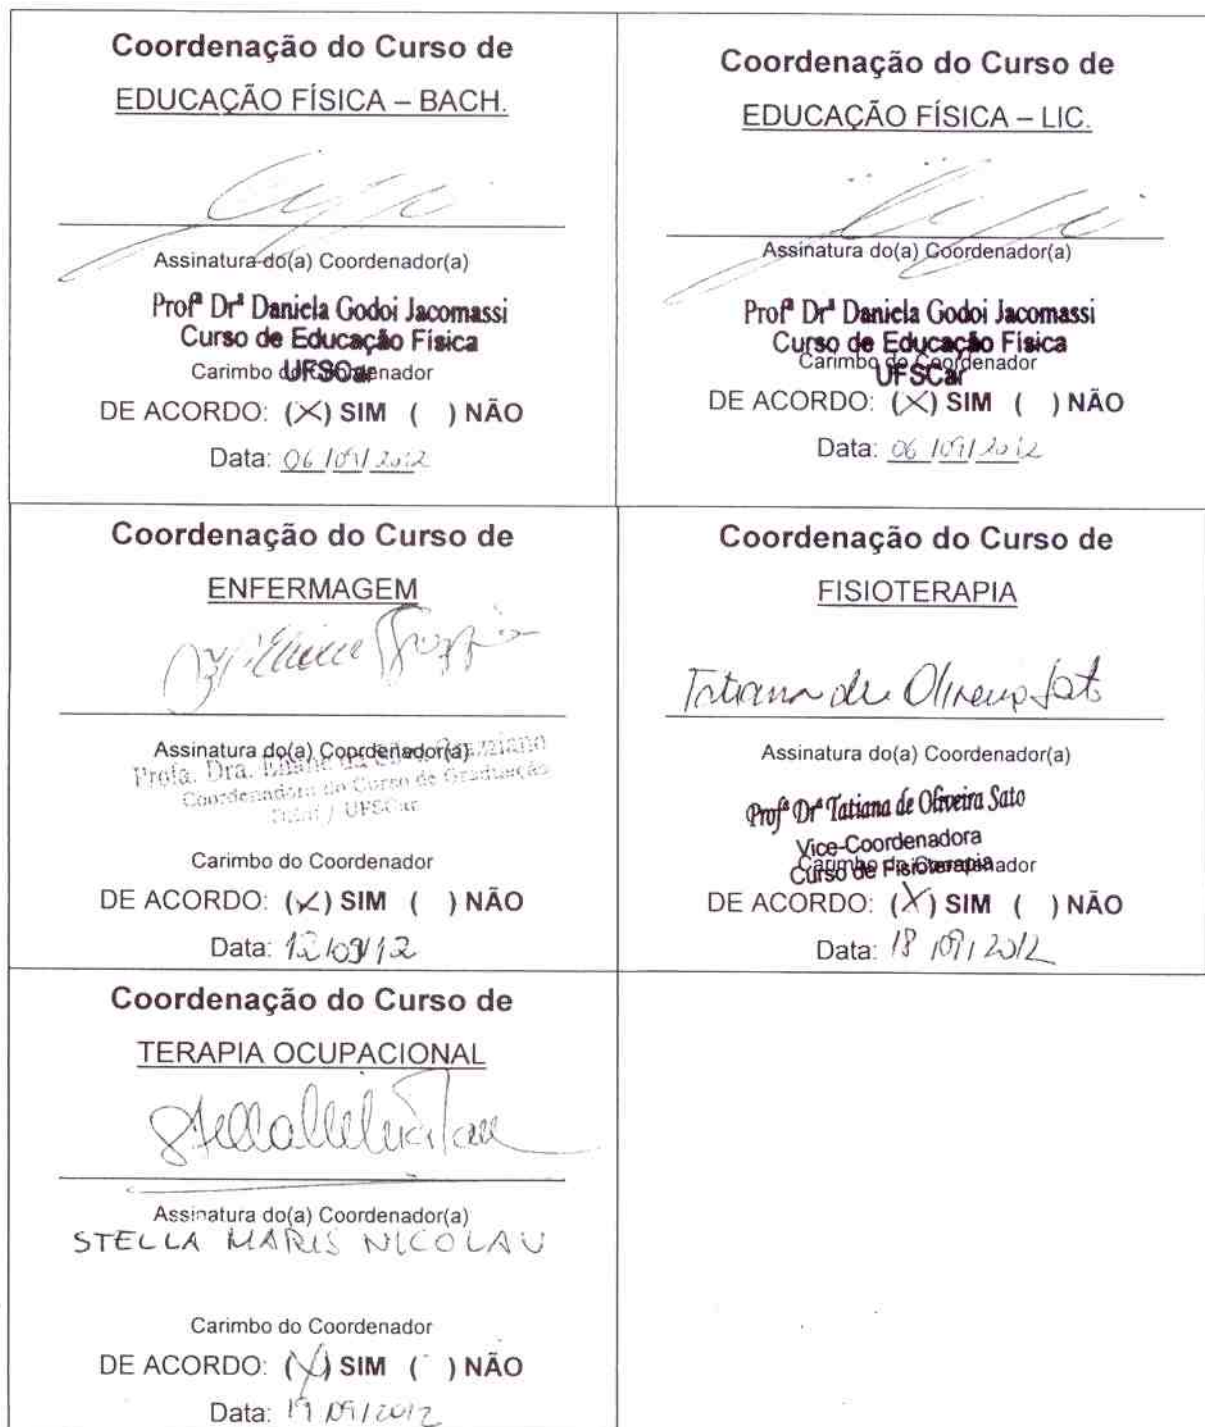 Coordenação do Curso de
EDUCAÇÃO FÍSICA – BACH.
Assinatura do(a) Coordenador(a)
Profª Drª Daniela Godoi Jacomassi
Curso de Educação Física
UFSCar
Carimbo do Coordenador
DE ACORDO: (X) SIM ( ) NÃO
Data: 06/09/2012
Coordenação do Curso de
EDUCAÇÃO FÍSICA – LIC.
Assinatura do(a) Coordenador(a)
Profª Drª Daniela Godoi Jacomassi
Curso de Educação Física
UFSCar
Carimbo do Coordenador
DE ACORDO: (X) SIM ( ) NÃO
Data: 06/09/2012
Coordenação do Curso de
ENFERMAGEM
Assinatura do(a) Coordenador(a)
Profa. Dra.
Coordenadora do Curso de Graduação
UFSCar
Carimbo do Coordenador
DE ACORDO: (X) SIM ( ) NÃO
Data: 12/09/12
Coordenação do Curso de
FISIOTERAPIA
Tatiana de Oliveira Sato
Assinatura do(a) Coordenador(a)
Profª Drª Tatiana de Oliveira Sato
Vice-Coordenadora
Curso de Fisioterapia
Carimbo do Coordenador
DE ACORDO: (X) SIM ( ) NÃO
Data: 18/09/2012
Coordenação do Curso de
TERAPIA OCUPACIONAL
Assinatura do(a) Coordenador(a)
STELLA MARIS NICOLAU
Carimbo do Coordenador
DE ACORDO: (X) SIM ( ) NÃO
Data: 19/09/2012